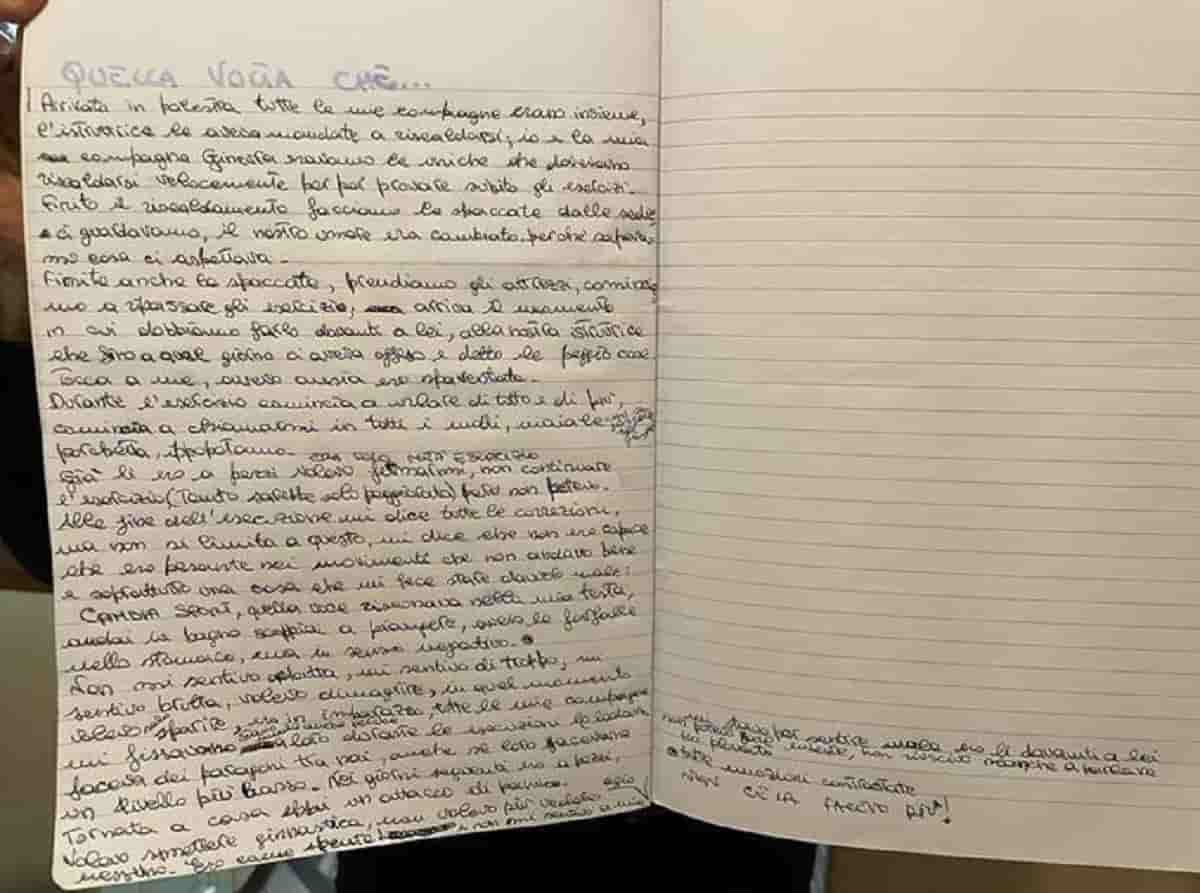 QUELLA VOLTA CHE...
Arrivata in palestra tutte le mie compagne erano insieme,
l'istruttrice le aveva mandate a riscaldarsi, io e la mia
compagna Ginevra eravamo le uniche che dovevano
riscaldarsi velocemente per poi provare subito gli esercizi.
Finito il riscaldamento facciamo le spaccate dalle sedie
e ci guardavamo, il nostro umore era cambiato perché sapeva
mo cosa ci aspettava.
Finite anche le spaccate, prendiamo gli attrezzi, comincia
mo a ripassare gli esercizi, arriva il momento
in cui dobbiamo farlo davanti a lei, alla nostra istruttrice
che fino a quel giorno ci aveva offeso e detto le peggio cose.
Tocca a me, avevo ansia ero spaventata.
Durante l'esercizio comincia a urlare di tutto e di più,
comincia a chiamarmi in tutti i modi, maiale
porchetta, ippopotamo.
Già lì ero a pezzi volevo fermarmi, non continuare
l'esercizio (Tanto sarebbe solo peggiorata) però non potevo.
Alla fine dell'esecuzione mi dice tutte le correzioni,
ma non si limita a questo, mi dice che non ero capace
che ero pesante nei movimenti che non andavo bene
e soprattutto una cosa che mi fece stare davvero male:
CAMBIA SPORT, quella voce risuonava nella mia testa,
andai in bagno scoppiai a piangere, avevo le farfalle
nello stomaco, ma in senso negativo.
Non mi sentivo adatta, mi sentivo di troppo, mi
sentivo brutta, volevo dimagrire, in quel momento
volevo sparire, ero in imbarazzo, tutte le mie compagne
mi fissavano loro durante le esecuzioni le lodava
faceva dei paragoni tra noi, anche se loro facevano
un livello più basso. Nei giorni seguenti ero a pezzi,
Tornata a casa ebbi un attacco di panico.
Volevo smettere ginnastica, non volevo più vedere
nessuno. Ero come spenta e non mi sentivo a mio
agio
mi stavo per sentire male, ero lì davanti a lei
non potevo fare niente, non riuscivo neanche a parlare
tutte emozioni contrastate
NON CE LA FACEVO PIÙ!